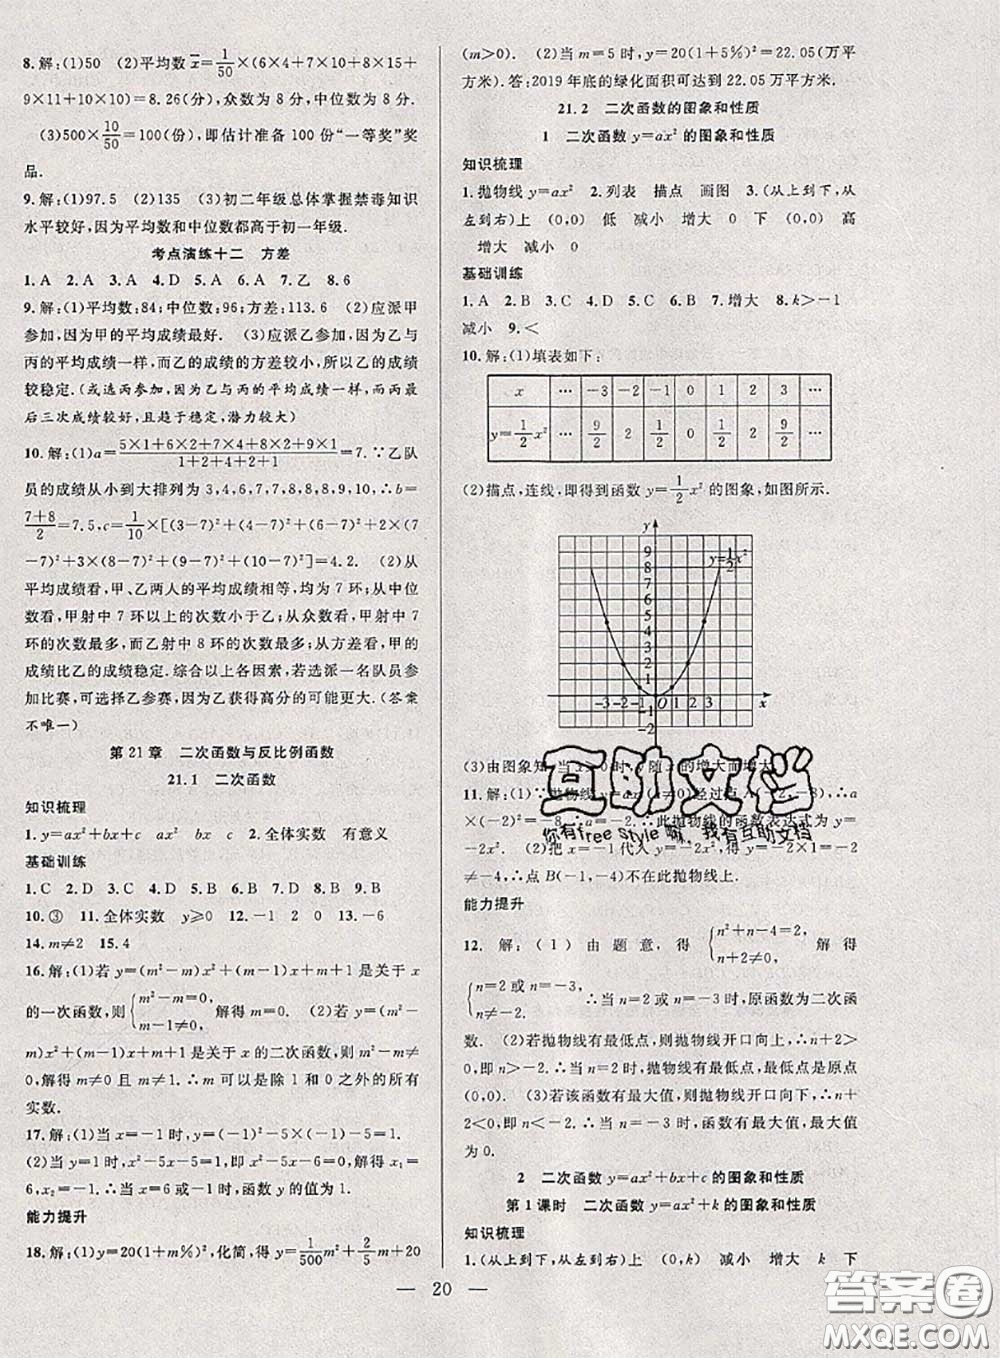 8.解:(1)50　(2)平均数x̄=1/50×(6×4+7×6+8×15+
9×11+10×10)=8.26(分),众数为 8 分,中位数为 8 分.
(3)500×10/50=100(份),即估计准备 100 份“一等奖”奖
品.
9.解:(1)97.5　(2)135　(3)初二年级总体掌握禁毒知识
水平较好,因为平均数和中位数都高于初一年级.
考点演练十二　方差
1.A　2.A　3.A　4.D　5.A　6.A　7.乙　8.6
9.解:(1)平均数:84;中位数:96;方差:113.6　(2)应派甲
参加,因为甲的平均成绩最好.　(3)应派乙参加,因为乙与
丙的平均成绩一样,而乙的成绩的方差较小,所以乙的成绩
较稳定.(或选丙参加,因为乙与丙的平均成绩一样,而丙最
后三次成绩较好,且趋于稳定,潜力较大)
10.解:(1)a=(5×1+6×2+7×4+8×2+9×1)/(1+2+4+2+1)=7.∵乙队
员的成绩从小到大排列为 3,4,6,7,7,8,8,8,9,10.∴b=
(7+8)/2=7.5,c=1/10×[(3-7)²+(4-7)²+(6-7)²+2×(7
-7)²+3×(8-7)²+(9-7)²+(10-7)²]=4.2.　(2)从
平均成绩看,甲、乙两人的平均成绩相等,均为 7 环;从中位
数看,甲射中 7 环以上的次数小于乙;从众数看,甲射中 7
环的次数最多,而乙射中 8 环的次数最多;从方差看,甲的
成绩比乙的成绩稳定.综合以上各因素,若选派一名队员参
加比赛,可选择乙参赛,因为乙获得高分的可能更大.(答案
不唯一)
第 21 章　二次函数与反比例函数
21.1　二次函数
知识梳理
1.y=ax²+bx+c　ax²　bx　c　2.全体实数　有意义
基础训练
1.C　2.D　3.D　4.B　5.A　6.B　7.D　8.B　9.B
10.③　11.全体实数　y≥0　12.-1　2　0　13.-6
14.m≠2　15.4
16.解:(1)若 y=(m²-m)x²+(m-1)x+m+1 是关于 x
的一次函数,则{m²-m=0, m-1≠0, 解得 m=0.　(2)若 y=(m²-
m)x²+(m-1)x+m+1 是关于 x 的二次函数,则 m²-m≠
0,解得 m≠0 且 m≠1,∴m 的取值范围是除 1 和 0 之外的所有
实数.
17.解:(1)当 x=-1 时,y=(-1)²-5×(-1)-5=1.
(2)当 y=1 时,x²-5x-5=1,即 x²-5x-6=0,解得 x₁=
6,x₂=-1.∴当 x=6 或-1 时,函数 y 的值为 1.
能力提升
18.解:(1)y=20(1+m%)²,化简,得 y=1/500m²+2/5m+20
(m>0).　(2)当 m=5 时,y=20(1+5%)²=22.05(万平
方米).答:2019 年底的绿化面积可达到 22.05 万平方米.
21.2　二次函数的图象和性质
1　二次函数 y=ax² 的图象和性质
知识梳理
1.抛物线 y=ax²　2.列表　描点　画图　3.(从上到下,从
左到右)　(0,0)　低　减小　增大　0　下　(0,0)　高
增大　减小　0
基础训练
1.A　2.B　3.C　4.C　5.A　6.B　7.增大　8.k>-1
减小　9.<
10.解:(1)填表如下:
x　…　-3　-2　-1　0　1　2　3　…
y=1/2x²　…　9/2　2　1/2　0　1/2　2　9/2　…
(2)描点,连线,即得到函数 y=1/2x² 的图象,如图所示.
y
9 8 7 6 5 4 3 2 1
y=1/2x²
-3-2-1 O 1 2 3 4 5 6 x
-1
-2
(3)由图象知,当 x>0 时,y 随 x 的增大而增大.
互助文档
你有free style 嘛, 我有互助文档
11.解:(1)∵抛物线 y=ax²(a≠0)经过点 ∴a
×(-2)²=-8,∴a=-2,∴此抛物线的函数表达式为 y=
-2x².　(2)把 x=-1 代入 y=-2x²,得 y=-2×(-1)²=
-2≠-4,∴点 B(-1,-4)不在此抛物线上.
能力提升
12.解:(1)由题意,得{n²+n-4=2, n+2≠0. 解得
{n=2 或 n=-3, n≠-2. ∴当 n=2 或 n=-3 时,原函数为二次函
数.　(2)若抛物线有最低点,则抛物线开口向上,∴n+2>
0,即 n>-2.∴当 n=2 时,抛物线有最低点,最低点是原点
(0,0).　(3)若该函数有最大值,则抛物线开口向下,∴n+
2<0,即 n<-2.∴当 n=-3 时,该函数有最大值,最大值
为 0.
2　二次函数 y=ax²+bx+c 的图象和性质
第 1 课时　二次函数 y=ax²+k 的图象和性质
知识梳理
1.(从上到下,从左到右)　(0,k)　减小　增大　k　下
— 20 —
答案圈
MXQE.COM